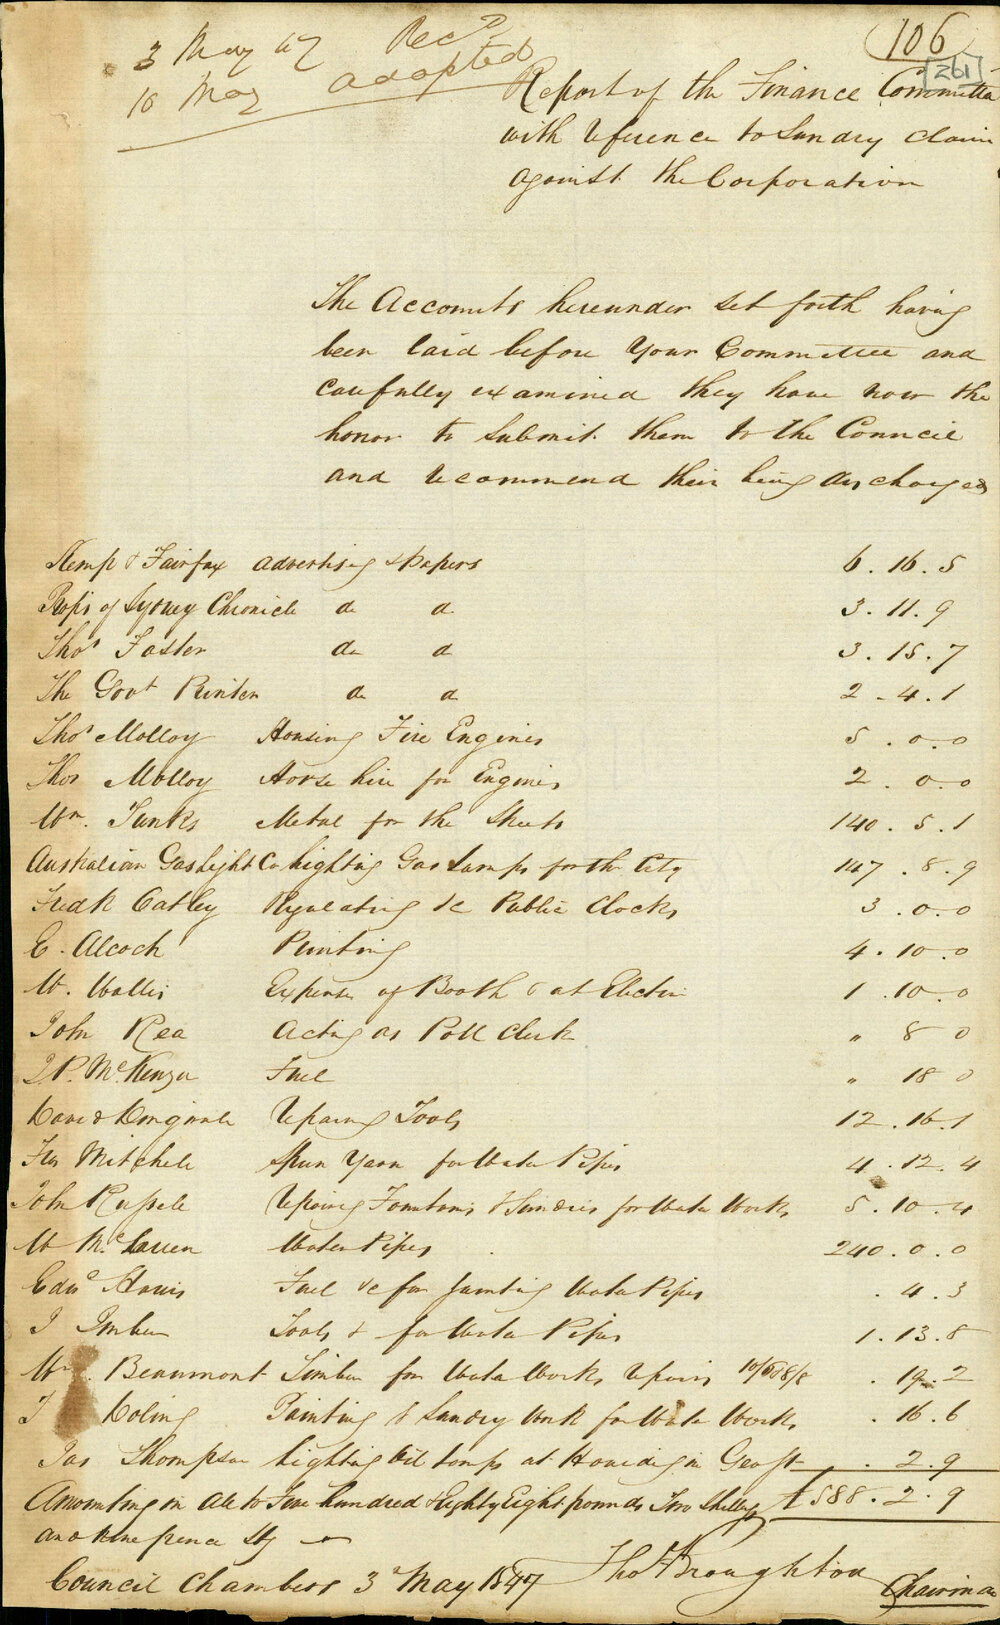 106
[261]
3 May 47 Recd
10 May adopted
Report of the Finance Committee
with reference to Sundry claims
against the Corporation
The Accounts hereunder set forth having
been laid before Your Committee and
carefully examined they have now the
honor to submit them to the Council
and recommend their being discharged
Kemp & Fairfax advertising & Papers 6 . 16 . 5
Props of Sydney Chronicle do do 3 . 11 . 9
Thos Forster do do 3 . 15 . 7
The Govt Printer do do 2 . 4 . 1
Thos Molloy Housing Fire Engines 5 . 0 . 0
Thos Molloy Horse hire for Engines 2 . 0 . 0
Wm. Tunks Metal for the Streets 140 . 5 . 1
Australian Gaslight Co Lighting Gas Lamps for the City 147 . 8 . 9
Fredk Catley Regulating &c Public Clocks 3 . 0 . 0
E. Alcock Printing 4 . 10 . 0
W. Wallis Expense of Booth & at Election 1 . 10 . 0
John Rea Acting as Poll Clerk " 8 0
McKenzie Fuel " 18 0
Repairing Tools 12 . 16 . 1
Mitchell Spun Yarn for Water Pipes 4 . 12 . 4
John Russell Repairing Fountains & Sundries for Water Works 5 . 10 . 4
W McLaren Water Pipes 240 . 0 . 0
Edwd Fuel &c for Jointing Water Pipes . 4 . 3
J Imber Tools & for Water Pipes 1 . 13 . 8
Wm. Beaumont Timber for Water Works repairs . 19 . 2
Painting & Sundry Work for Water Works . 16 . 6
Jas Thompson Lighting Oil lamps at . 2 . 9
Amounting in all to Five hundred & Eighty Eight pounds Two Shillings £588 . 2 . 9
and Nine pence Stg
Council Chambers 3d May 1847 Thos Broughton
Chairman